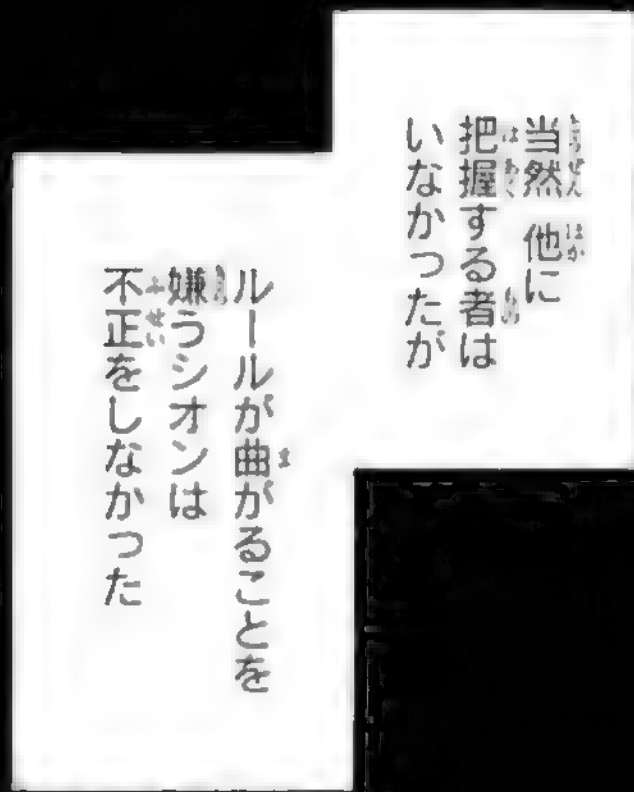 当然 他に
把握する者は
いなかったが
ルールが曲がることを
嫌うシオンは
不正をしなかった